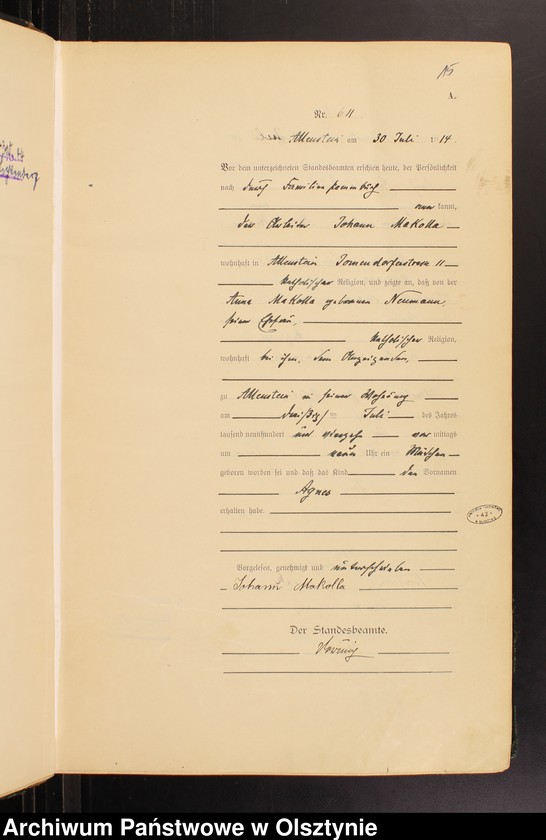 15
A.
Nr. 611
Allenstein am 30 Juli 1914.
Vor dem unterzeichneten Standesbeamten erschien heute, der Persönlichkeit
nach durch Familienstammbuch
anerkannt,
der Arbeiter Johann Makolla
wohnhaft in Allenstein Jomendorferstrasse 11
katholischer Religion, und zeigte an, daß von der
Anna Makolla geborenen Neumann,
seiner Ehefrau,
katholischer Religion,
wohnhaft bei ihm, dem Anzeigenden,
zu Allenstein in seiner Wohnung
am dreißigsten Juli des Jahres
tausend neunhundert und vierzehn vormittags
um neun Uhr ein Mädchen
geboren worden sei und daß das Kind den Vornamen
Agnes
erhalten habe.
Vorgelesen, genehmigt und unterschrieben
Johann Makolla
Der Standesbeamte.
Archiwum Państwowe w Olsztynie